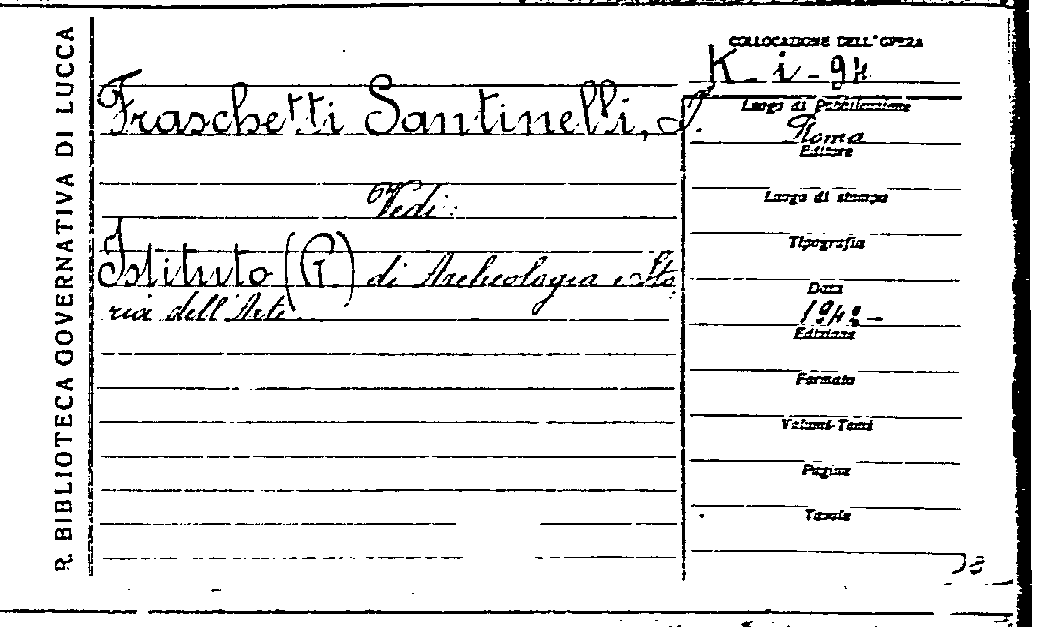 R. BIBLIOTECA GOVERNATIVA DI LUCCA
Fraschetti Santinelli,
Vedi:
Istituto (R.) di Archeologia e Sto
ria dell'Arte.
COLLOCAZIONE DELL'OPERA
K - i - 94
Luogo di Pubblicazione
Roma
Editore
Luogo di stampa
Tipografia
Data
194
Edizione
Formato
Volumi-Tomi
Pagine
Tavole